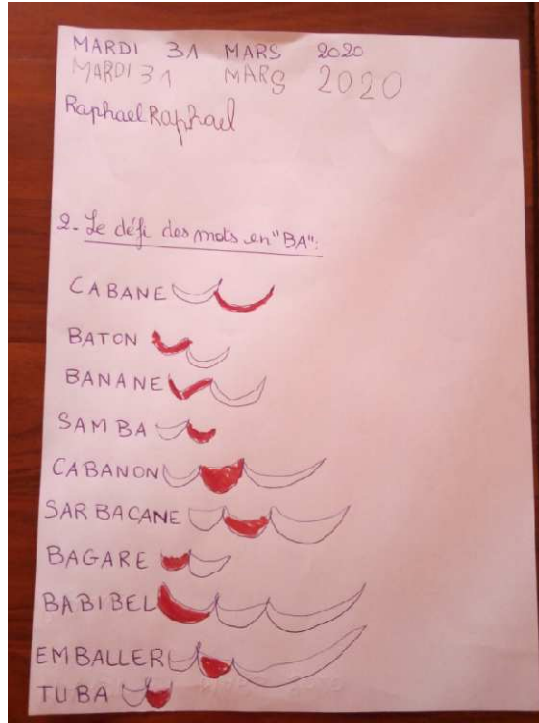 MARDI 31 MARS 2020
MARDI 31 MARS 2020
Raphael Raphael
2- Le défi des mots en "BA":
CABANE
BATON
BANANE
SAMBA
CABANON
SARBACANE
BAGARE
BABIBEL
EMBALLER
TUBA